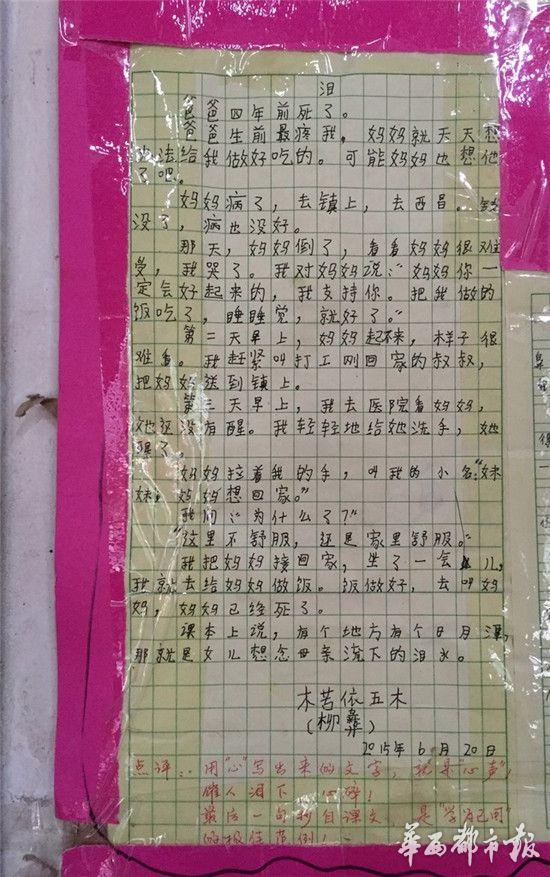 泪
爸爸四年前死了。
爸爸生前最疼我,妈妈就天天想
办法给我做好吃的。可能妈妈也想他
了吧。
妈妈病了,去镇上,去西昌。钱
没了,病也没好。
那天,妈妈倒了,看看妈妈很难
受,我哭了。我对妈妈说:“妈妈你一
定会好起来的,我支持你。把我做的
饭吃了,睡睡觉,就好了。”
第二天早上,妈妈起不来,样子很
难看。我赶紧叫打工刚回家的叔叔,
把妈妈送到镇上。
第三天早上,我去医院看妈妈,
她还没有醒。我轻轻地给她洗手,她
醒了。
妈妈拉着我的手,叫我的小名:“妹
妹,妈妈想回家。”
我问:“为什么了?”
“这里不舒服,还是家里舒服。”
我把妈妈接回家,坐了一会儿,
我就去给妈妈做饭。饭做好,去叫妈
妈,妈妈已经死了。
课本上说,有个地方有个日月潭,
那就是女儿想念母亲流下的泪水。
木苦依五木
(柳彝)
2015年6月20日
点评:用“心”写出来的文字,就是“心声”,
催人泪下、心碎!
最后一句抄自课文,是“学为己用”
的极佳范例!
华西都市报